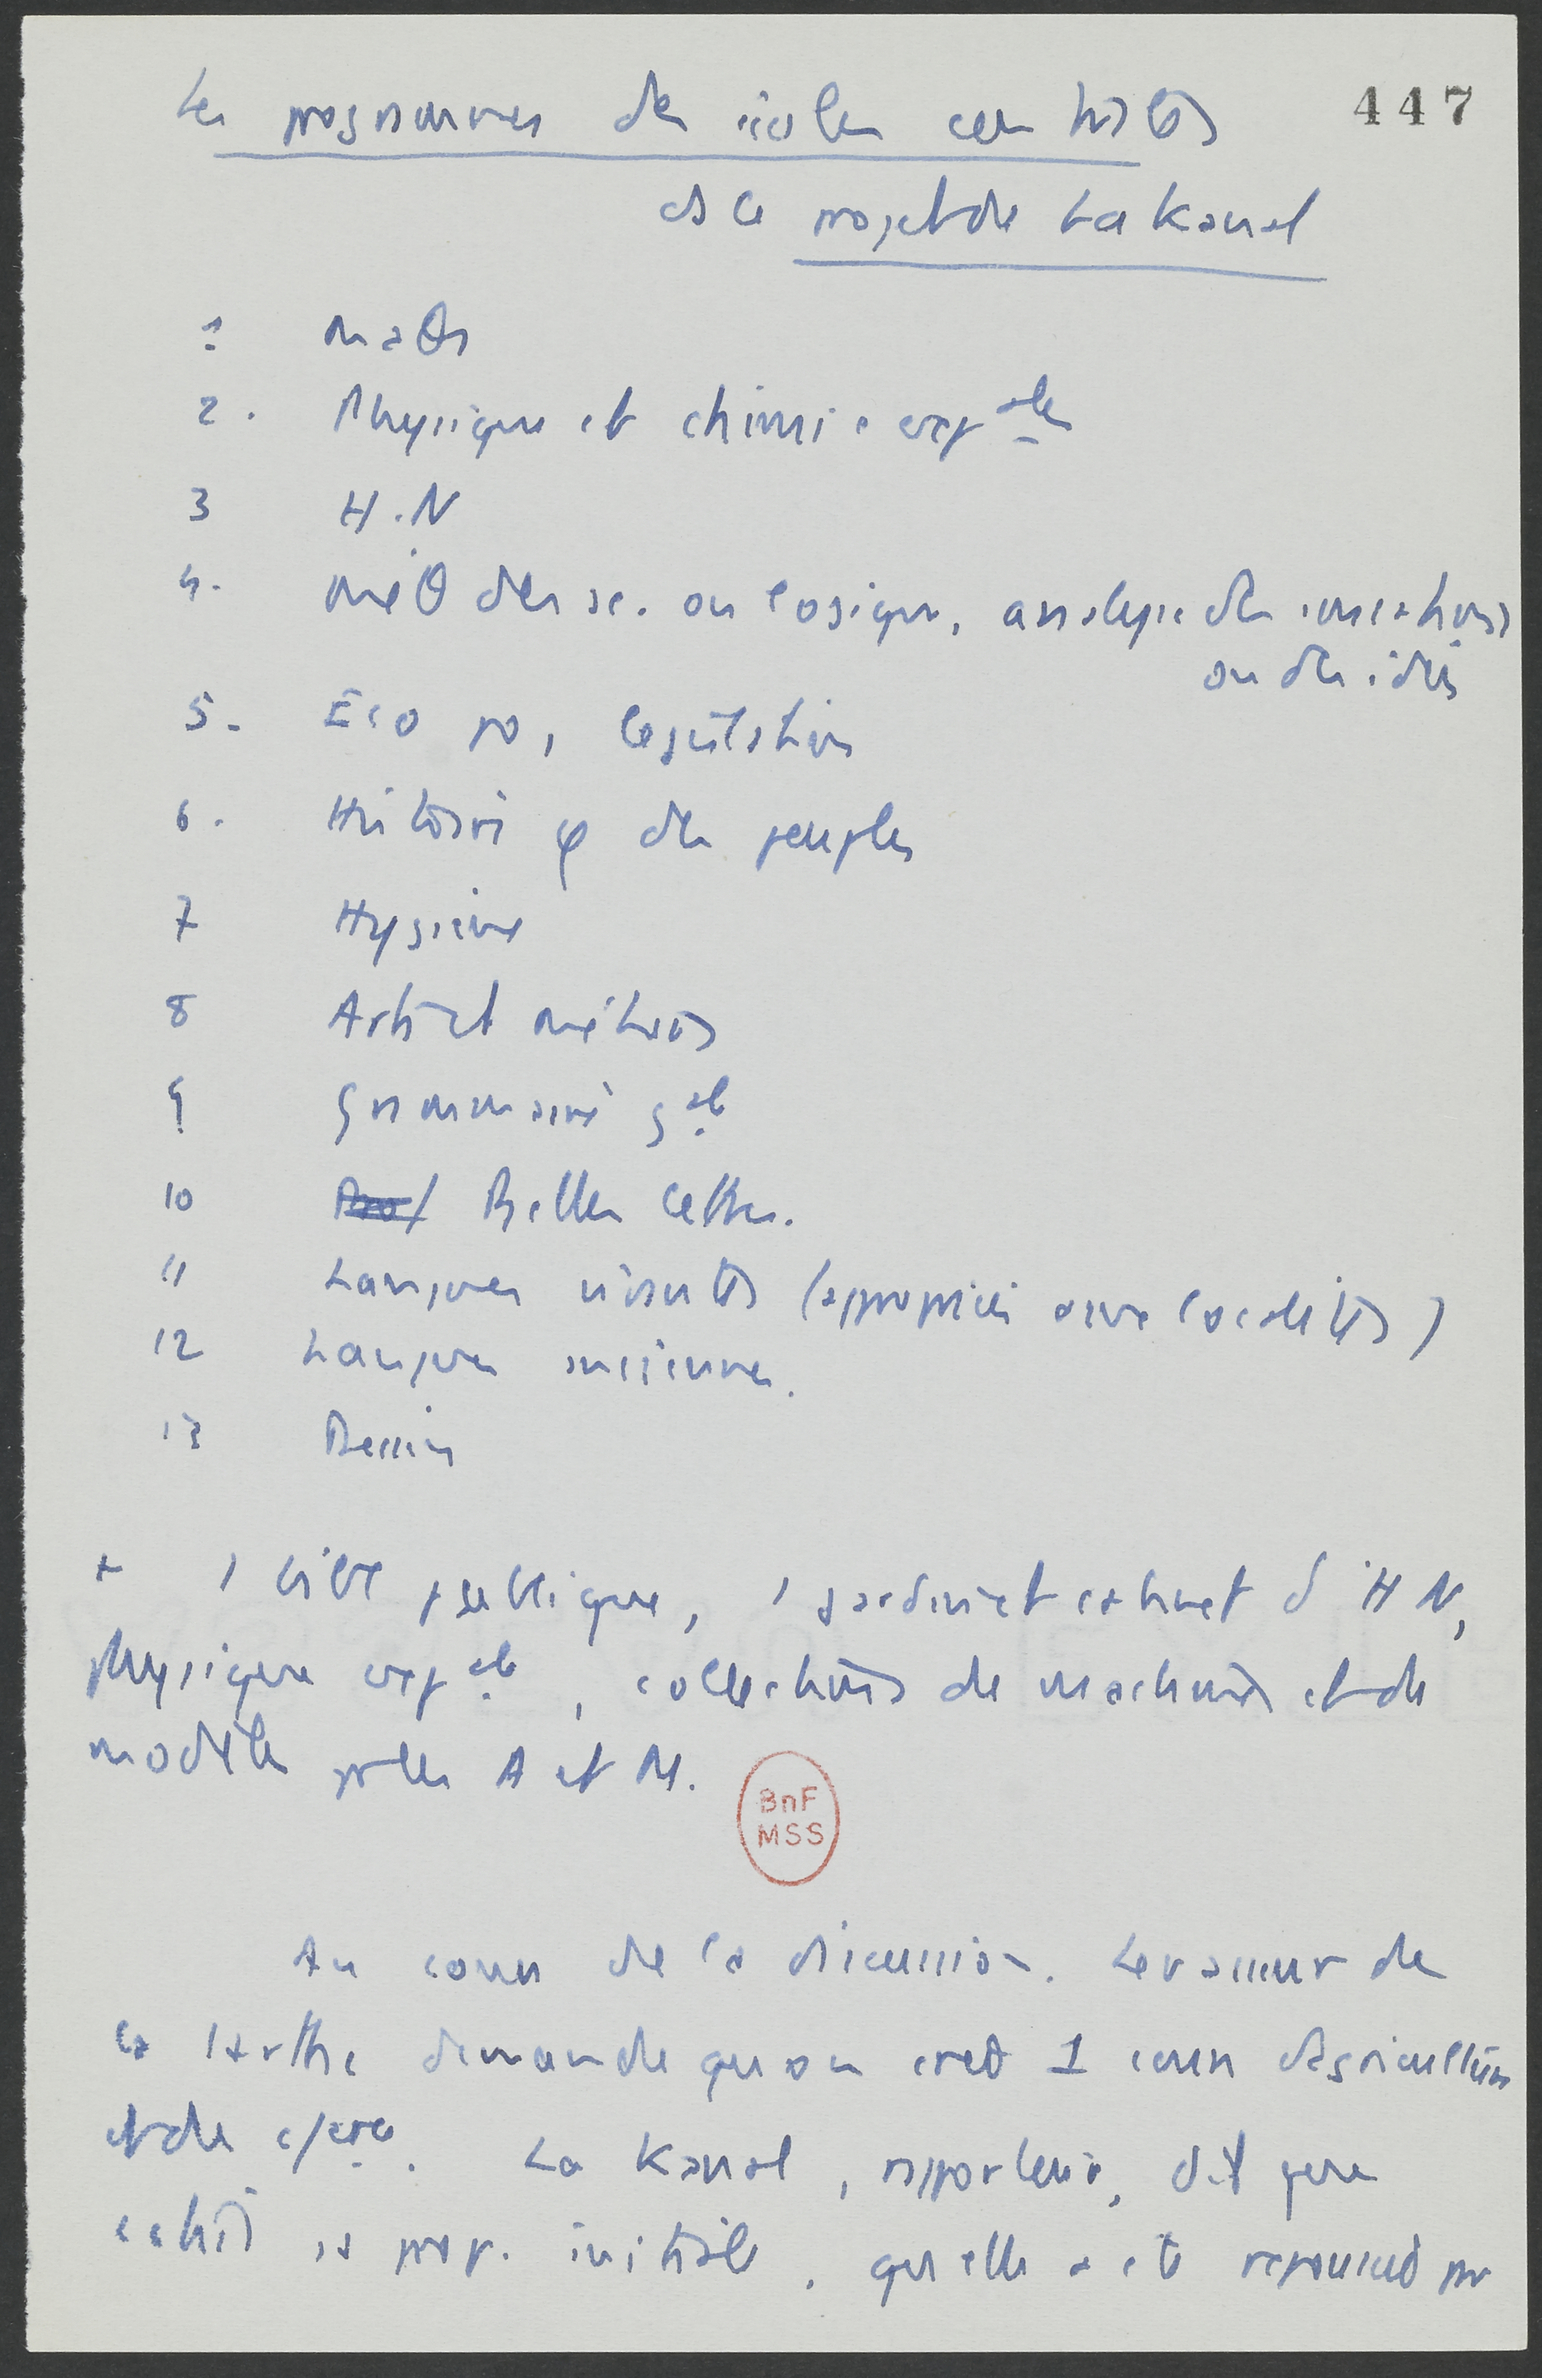 447
Les programmes des écoles centrales
ds le projet de Lakanal
1 Maths
2. Physique et chimie expales
3 H.N
4. Méθ des sc. ou logique, analyse des sensations
ou des idées
5. Eco po, législation
6. Histoire φ des peuples
7 Hygiène
8 Arts et métiers
9 Grammaire gale
10 Belles lettres.
11 Langues vivantes (appropriées aux localités)
12 Langues anciennes.
13 Dessin
+ 1 bibl publique, 1 jardin et cabinet d'HN,
physique expale, collections de machines et de
modèles pr les A et M.
BnF
MSS
Au cours de la discussion. Levasseur de
la Sarthe demande qu'on crée 1 cours d'agriculture
et de c/erce. Lakanal, rapporteur, dit que
c'était sa prop. initiale, qu'elle a été repoussée par